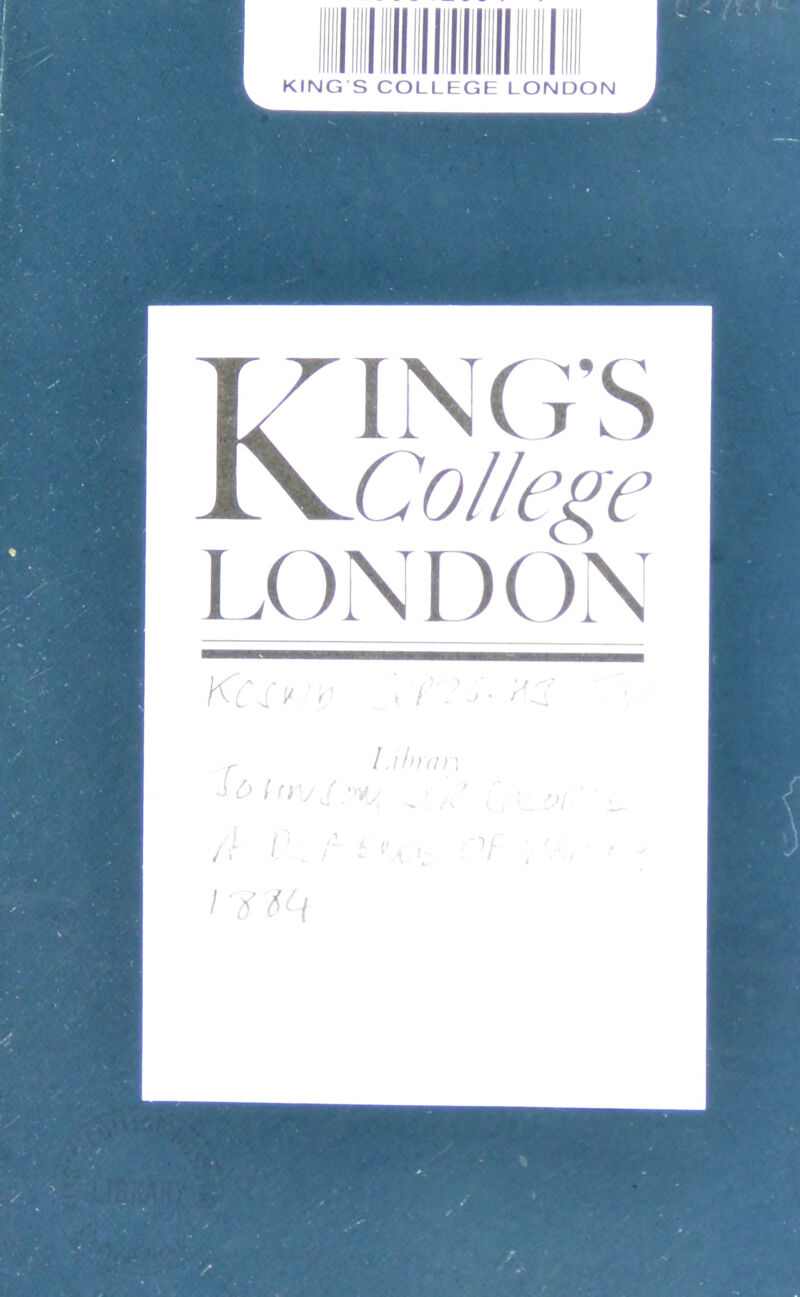 KING'S COLLEGE LONDON
KING'S
College
LONDON
KCSMD
Library
JOHNSON, SIR GEORGE
A DEFENCE OF
1884
LIBRARY